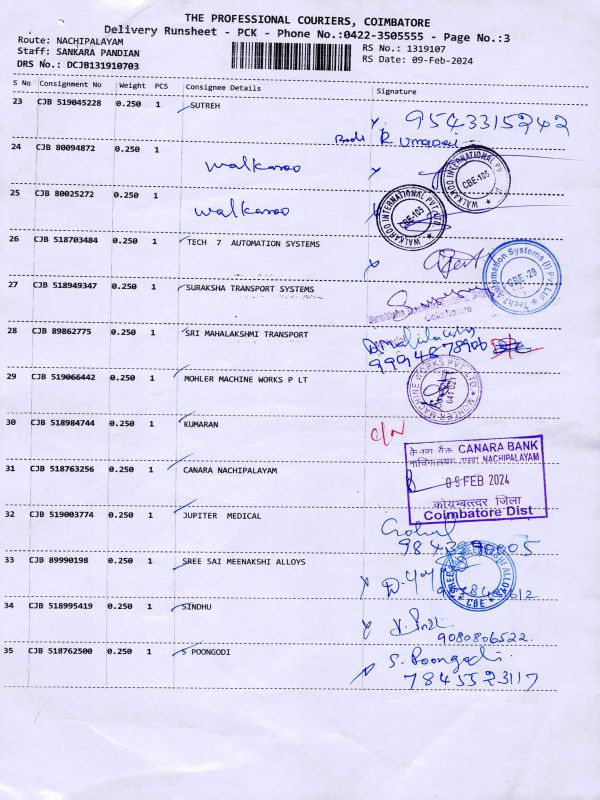 THE PROFESSIONAL COURIERS, COIMBATORE
Delivery Runsheet - PCK - Phone No.:0422-3505555 - Page No.:3
Route: NACHIPALAYAM
Staff: SANKARA PANDIAN
DRS No.: DCJB131910703
RS No.: 1319107
RS Date: 09-Feb-2024
S No Consignment No Weight PCS Consignee Details Signature
23 CJB 519045228 0.250 1 SUTREH 9543315242
24 CJB 80094872 0.250 1 walkaroo
WALKAROO INTERNATIONAL PVT. LTD CBE-105
25 CJB 80025272 0.250 1 walkaroo
WALKAROO INTERNATIONAL PVT. LTD CBE-105
26 CJB 518703484 0.250 1 TECH 7 AUTOMATION SYSTEMS
Tech7 Automation Systems (I) Pvt Ltd CBE-29
27 CJB 518949347 0.250 1 SURAKSHA TRANSPORT SYSTEMS
28 CJB 89862775 0.250 1 SRI MAHALAKSHMI TRANSPORT
9994878906
29 CJB 519066442 0.250 1 MOHLER MACHINE WORKS P LT
MOHLER MACHINE WORKS PVT. LTD
30 CJB 518984744 0.250 1 KUMARAN C/N
31 CJB 518763256 0.250 1 CANARA NACHIPALAYAM
केनरा बैंक CANARA BANK
NACHIPALAYAM
09 FEB 2024
कोयम्बत्तूर जिला
Coimbatore Dist
32 CJB 519003774 0.250 1 JUPITER MEDICAL Gokul
33 CJB 89990198 0.250 1 SREE SAI MEENAKSHI ALLOYS
CBE
34 CJB 518995419 0.250 1 SINDHU
9080806522.
35 CJB 518762500 0.250 1 S POONGODI S. Poongodi
7845523117